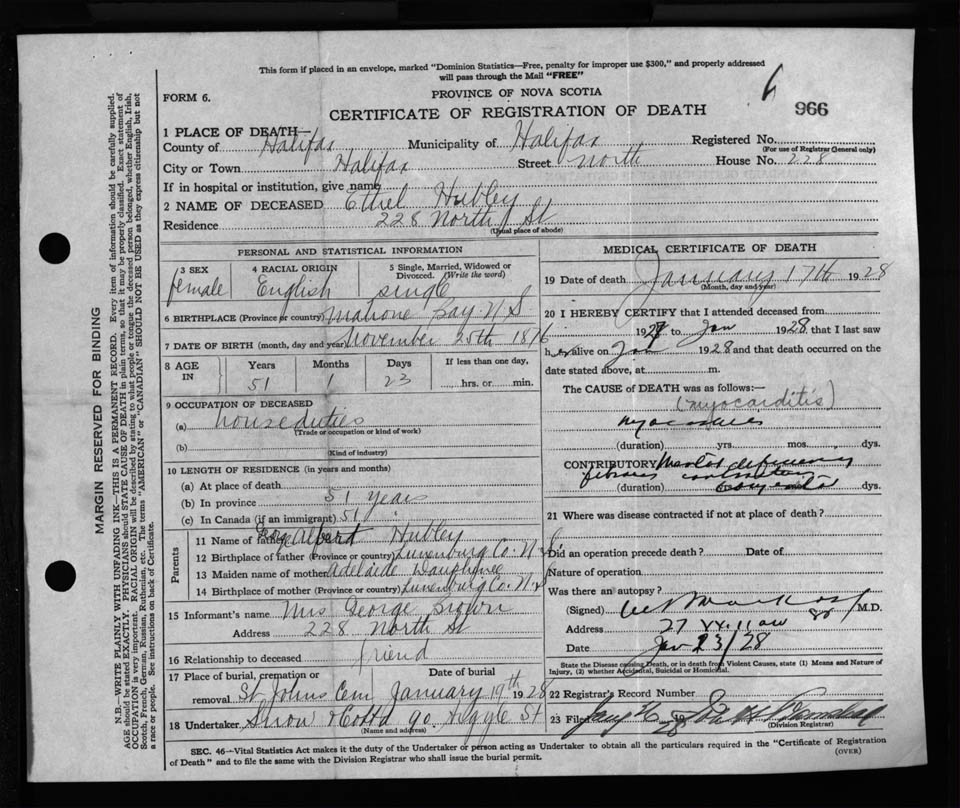 This form if placed in an envelope, marked "Dominion Statistics—Free, penalty for improper use $300," and properly addressed
will pass through the Mail "FREE"
FORM 6.
PROVINCE OF NOVA SCOTIA
966
CERTIFICATE OF REGISTRATION OF DEATH
1 PLACE OF DEATH—
County of Halifax Municipality of Halifax Registered No.
(For use of Registrar General only)
City or Town Halifax Street North House No. 228
If in hospital or institution, give name
2 NAME OF DECEASED Ethel Hubley
Residence 228 North St
(Usual place of abode)
PERSONAL AND STATISTICAL INFORMATION
3 SEX 4 RACIAL ORIGIN 5 Single, Married, Widowed or Divorced. (Write the word)
female English single
6 BIRTHPLACE (Province or country) Mahone Bay N S
7 DATE OF BIRTH (month, day and year) November 25th 1876
8 AGE IN Years Months Days If less than one day,
51 1 23 hrs. or min.
9 OCCUPATION OF DECEASED
(a) house duties
(Trade or occupation or kind of work)
(b)
(Kind of industry)
10 LENGTH OF RESIDENCE (in years and months)
(a) At place of death
(b) In province 51 years
(c) In Canada (if an immigrant) 51 "
Parents
11 Name of father Albert Hubley
12 Birthplace of father (Province or country) Lunenburg Co. N.S
13 Maiden name of mother Adelaide Dauphinee
14 Birthplace of mother (Province or country) Lunenburg Co. N S
15 Informant's name Mrs George Brown
Address 228 North St
16 Relationship to deceased friend
17 Place of burial, cremation or Date of burial
removal St Johns Cem January 19th 1928
18 Undertaker Snow 90 Argyle St
(Name and address)
MEDICAL CERTIFICATE OF DEATH
19 Date of death January 17th 1928
(Month, day and year)
20 I HEREBY CERTIFY that I attended deceased from
192 to Jan 1928 that I last saw
her alive on Jan 1928 and that death occurred on the
date stated above, at m.
The CAUSE of DEATH was as follows:—
(myocarditis)
(duration) yrs. mos. dys.
CONTRIBUTORY Mental deficiency
(duration) dys.
21 Where was disease contracted if not at place of death?
Did an operation precede death? Date of
Nature of operation
Was there an autopsy?
(Signed) M.D.
Address 27
Date Jan 23/28
State the Disease causing Death, or in death from Violent Causes, state (1) Means and Nature of
Injury, (2) whether Accidental, Suicidal or Homicidal.
22 Registrar's Record Number
23 Filed 19
(Division Registrar)
SEC. 46—Vital Statistics Act makes it the duty of the Undertaker or person acting as Undertaker to obtain all the particulars required in the "Certificate of Registration
of Death" and to file the same with the Division Registrar who shall issue the burial permit.
(OVER)
MARGIN RESERVED FOR BINDING
N.B.—WRITE PLAINLY WITH UNFADING INK—THIS IS A PERMANENT RECORD. Every item of information should be carefully supplied.
AGE should be stated EXACTLY. PHYSICIANS should STATE CAUSE OF DEATH in plain terms, so that it may be properly classified. Exact statement of
OCCUPATION is very important. RACIAL ORIGIN will be described by stating to what people or tongue the deceased person belonged, whether English, Irish,
Scotch, French, German, Russian, Ruthenian, etc. The terms "AMERICAN" or "CANADIAN" SHOULD NOT BE USED as they express citizenship but not
a race or people. See instructions on back of Certificate.